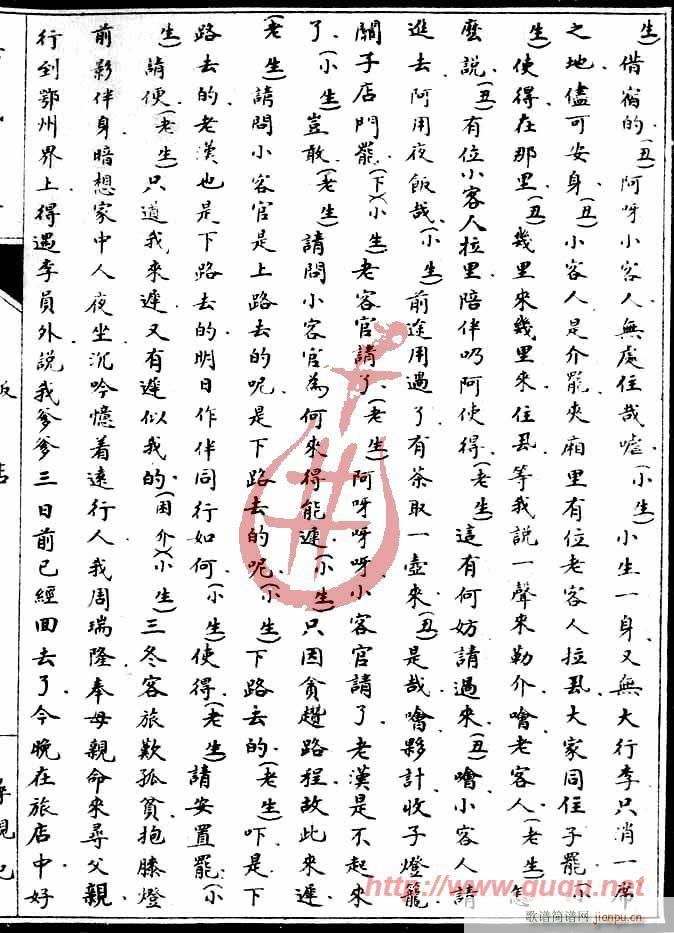 生)借宿的(丑)阿呀小客人無處住哉嘘(小生)小生一身又無大行李只消一席
之地儘可安身(丑)小客人是介罷夾廂里有位老客人拉丑大家同住子罷(小
生)使得在那里(丑)幾里來幾里來住丑等我說一聲來勒介噲老客人(老生)怎
麽說(丑)有位小客人拉里陪伴吥阿使得(老生)這有何妨請過來(丑)噲小客人請
進去阿用夜飯哉(小生)前途用過了有茶取一壺來(丑)是哉噲夥計收子燈籠
關子店門罷(下)(小生)老客官請了(老生)阿呀呀呀小客官請了老漢是不起來
了(小生)豈敢(老生)請問小客官為何來得能遲(小生)只因貪趲路程故此來遲
(老生)請問小客官是上路去的呢是下路去的呢(小生)下路去的(老生)吓是下
路去的老漢也是下路去的明日作伴同行如何(小生)使得(老生)請安置罷(小
生)請便(老生)只道我來遲又有遲似我的(困介)(小生)三冬客旅歎孤貧抱膝燈
前影伴身暗想家中人夜坐沉吟憶着遠行人我周瑞隆奉母親命來尋父親
行到鄂州界上得遇李員外說我爹爹三日前已經回去了今晚在旅店中好
http://www.guqu.net
歌谱简谱网
jianpu.cn